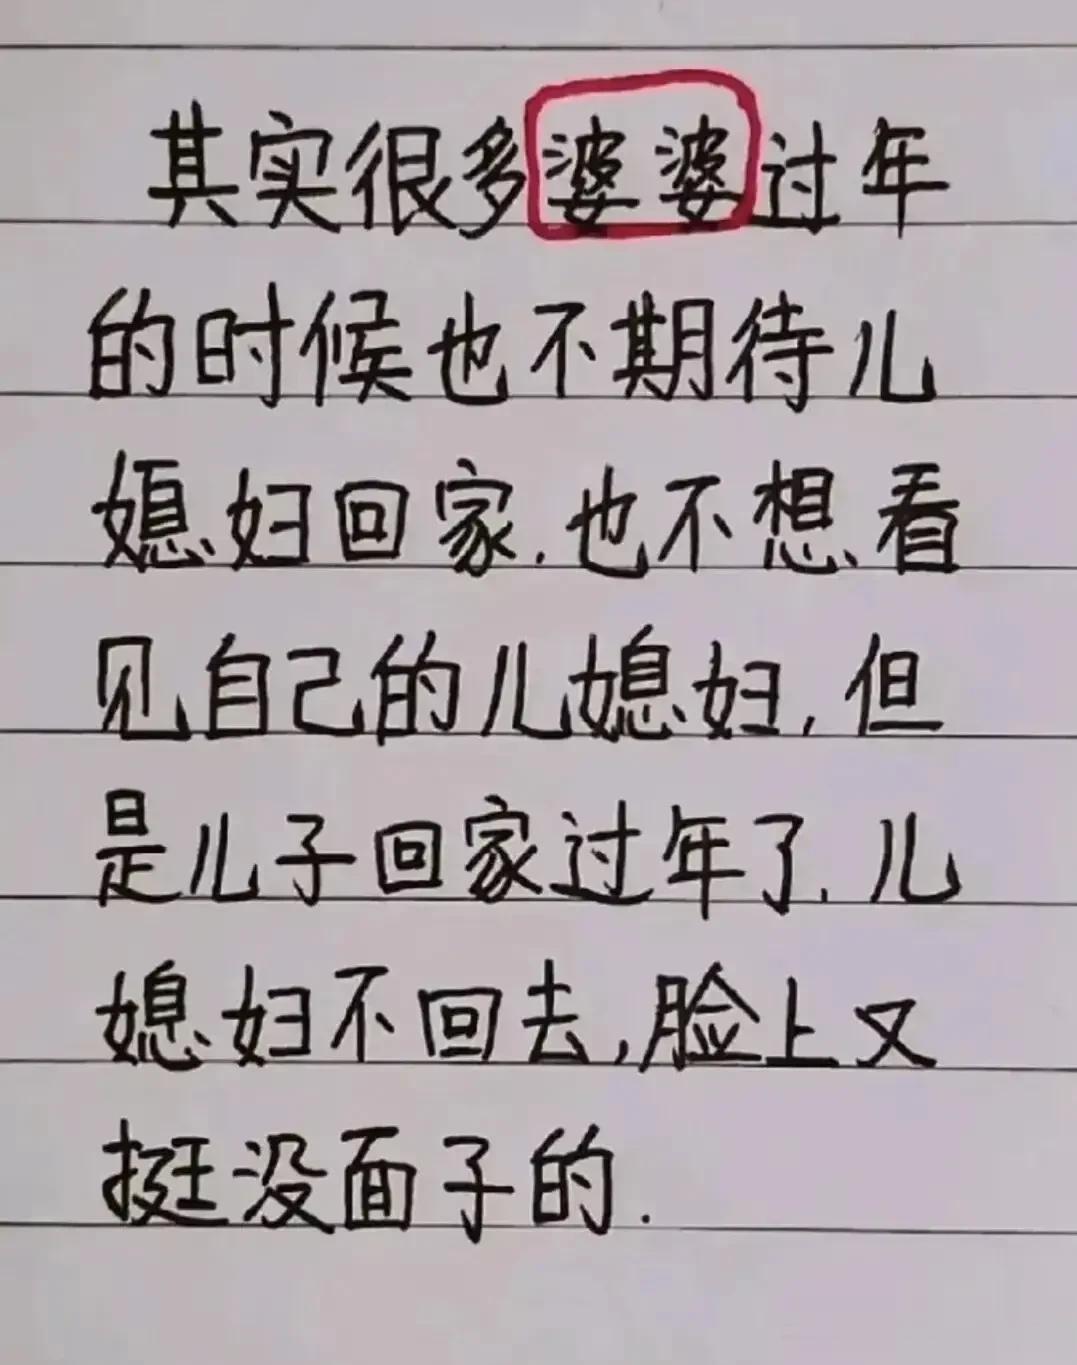 其实很多婆婆过年
的时候也不期待儿
媳妇回家.也不想看
见自己的儿媳妇,但
是儿子回家过年了.儿
媳妇不回去,脸上又
挺没面子的.